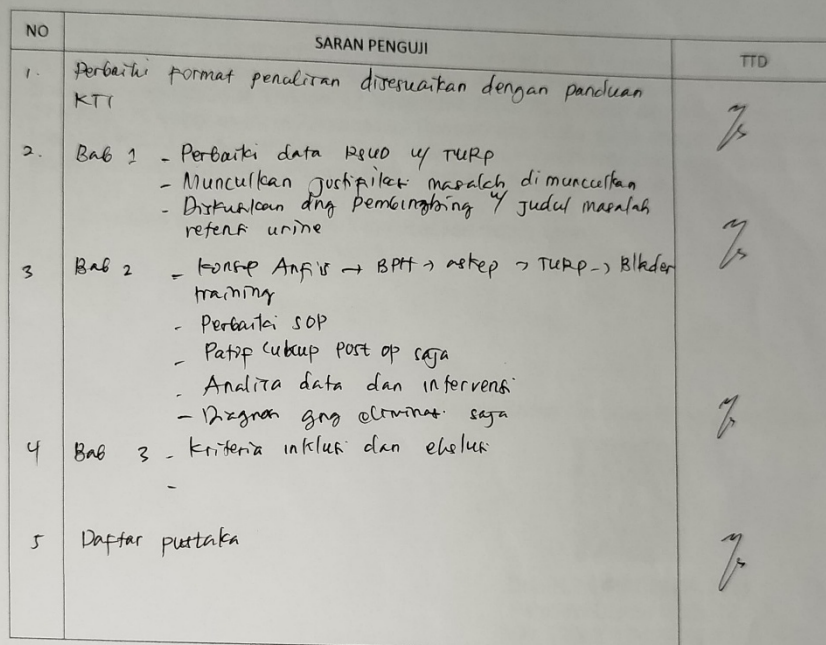 NO
SARAN PENGUJI
TTD
1.
Perbaiki format penulisan disesuaikan dengan panduan
KTI
2.
Bab 1 - Perbaiki data RSUD u/ TURP
- Munculkan justifikasi masalah dimunculkan
- Diskusikan dng Pembingbing u/ judul masalah
retensi urine
3
Bab 2 - Konsep Anfis → BPH → askep → TURP → Blkder
training
- Perbaiki SOP
- Patof cukup post op saja
- Analisa data dan intervensi
- Diagnosa gng eliminasi saja
4
Bab 3 - Kriteria inklusi dan ekslusi
-
5
Daftar pustaka